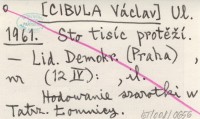 [CIBULA Václav] Ul.
1961. Sto tisíc protěží.
— Lid. Demokr. (Praha) ,
nr (12 IV): , il.
Hodowanie szarotki w
Tatr. Łomnicy.